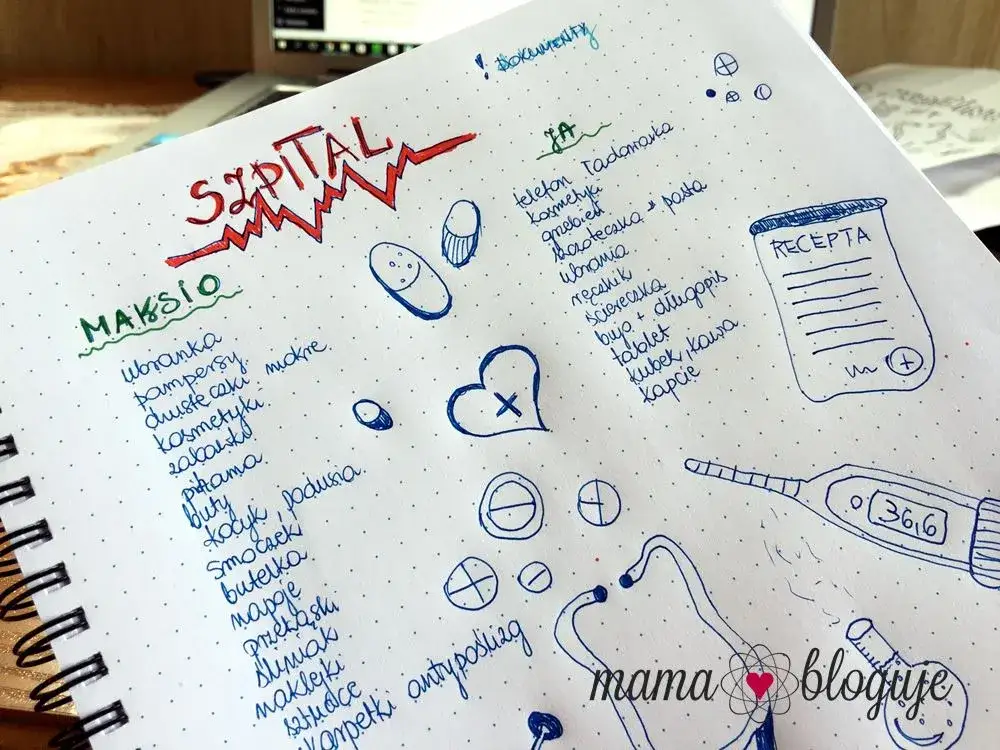 ! DOKUMENTY
SZPITAL
MAKSIO
ubranka
pampersy
chusteczki mokre.
kosmetyki
zabawki
piżama
buty
kocyk, podusia.
smoczek
butelka
napoje
przekąski
śliniak
naklejki
sztućce
skarpetki antypoślizg
JA
telefon ładowarka
kosmetyki
grzebień
szczoteczka + pasta
ubrania
ręcznik
ściereczka
bujo + długopis
tablet
kubek, kawa
kapcie
RECEPTA
36,6
mama bloguje